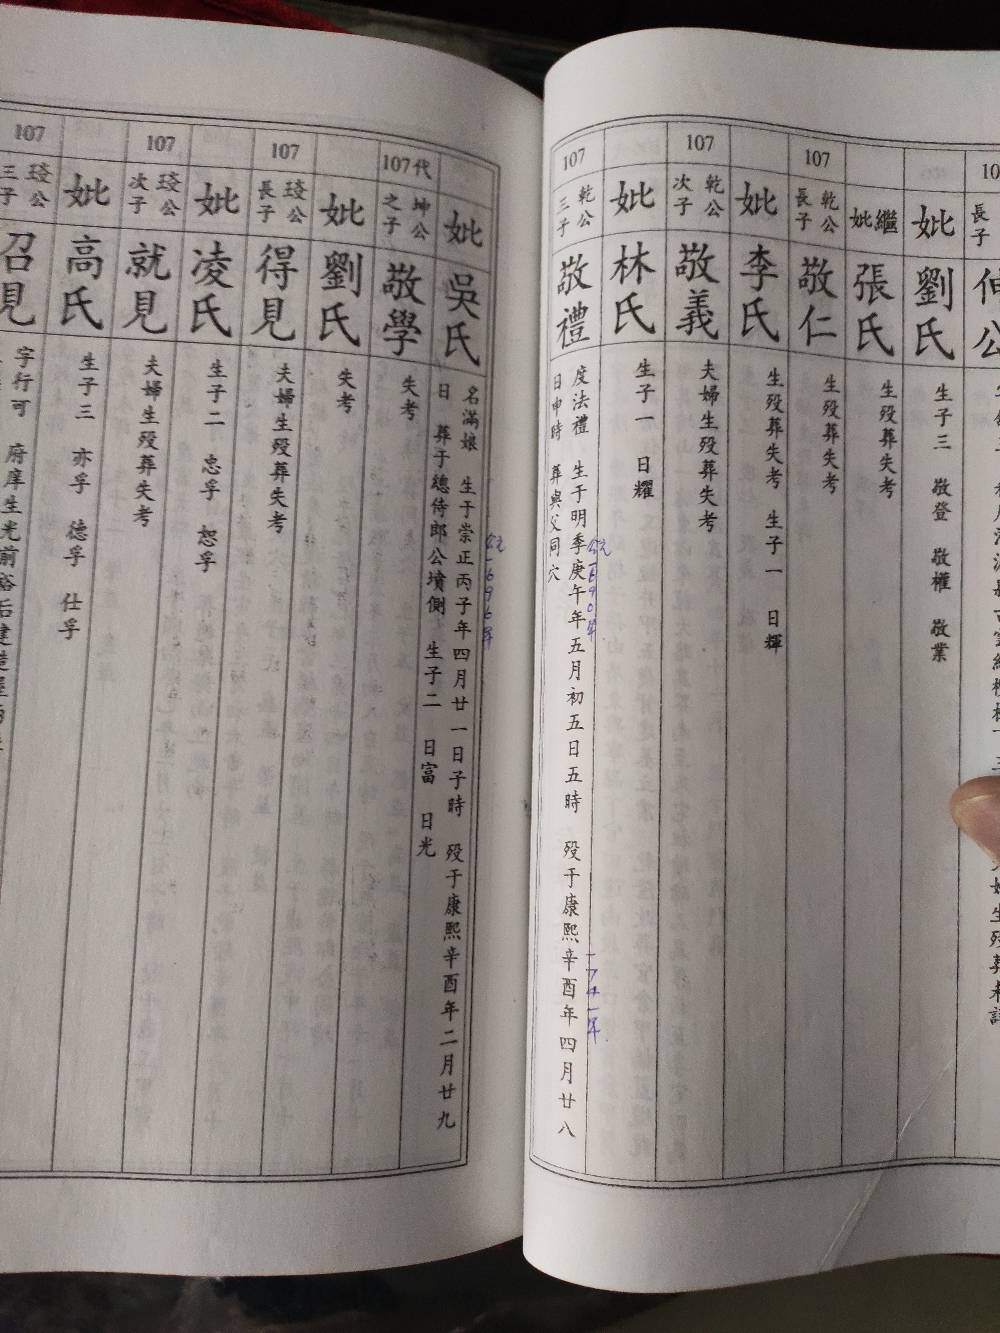 長子
伸公
妣
劉氏
生子三 敬登 敬權 敬業
繼妣
張氏
生殁葬失考
107
乾公長子
敬仁
生殁葬失考
妣
李氏
生殁葬失考 生子一 日輝
107
乾公次子
敬義
夫婦生殁葬失考
妣
林氏
生子一 日耀
107
乾公三子
敬禮
度法禮 生于明季庚午年五月初五日五時 殁于康熙辛酉年四月廿八
日申時 葬與父同穴
公元一六九0年
一七四一年
妣
吳氏
名滿娘 生于崇正丙子年四月廿一日子時 殁于康熙辛酉年二月廿九
日 葬于總侍郎公墳側 生子二 日富 日光
公元一六九六年
107代
坤公之子
敬學
失考
妣
劉氏
失考
107
琰公長子
得見
夫婦生殁葬失考
妣
凌氏
生子二 忠孚 恕孚
107
琰公次子
就見
夫婦生殁葬失考
妣
高氏
生子三 亦孚 德孚 仕孚
107
琰公三子
召見
字行可 府庠生光前裕后建造屋